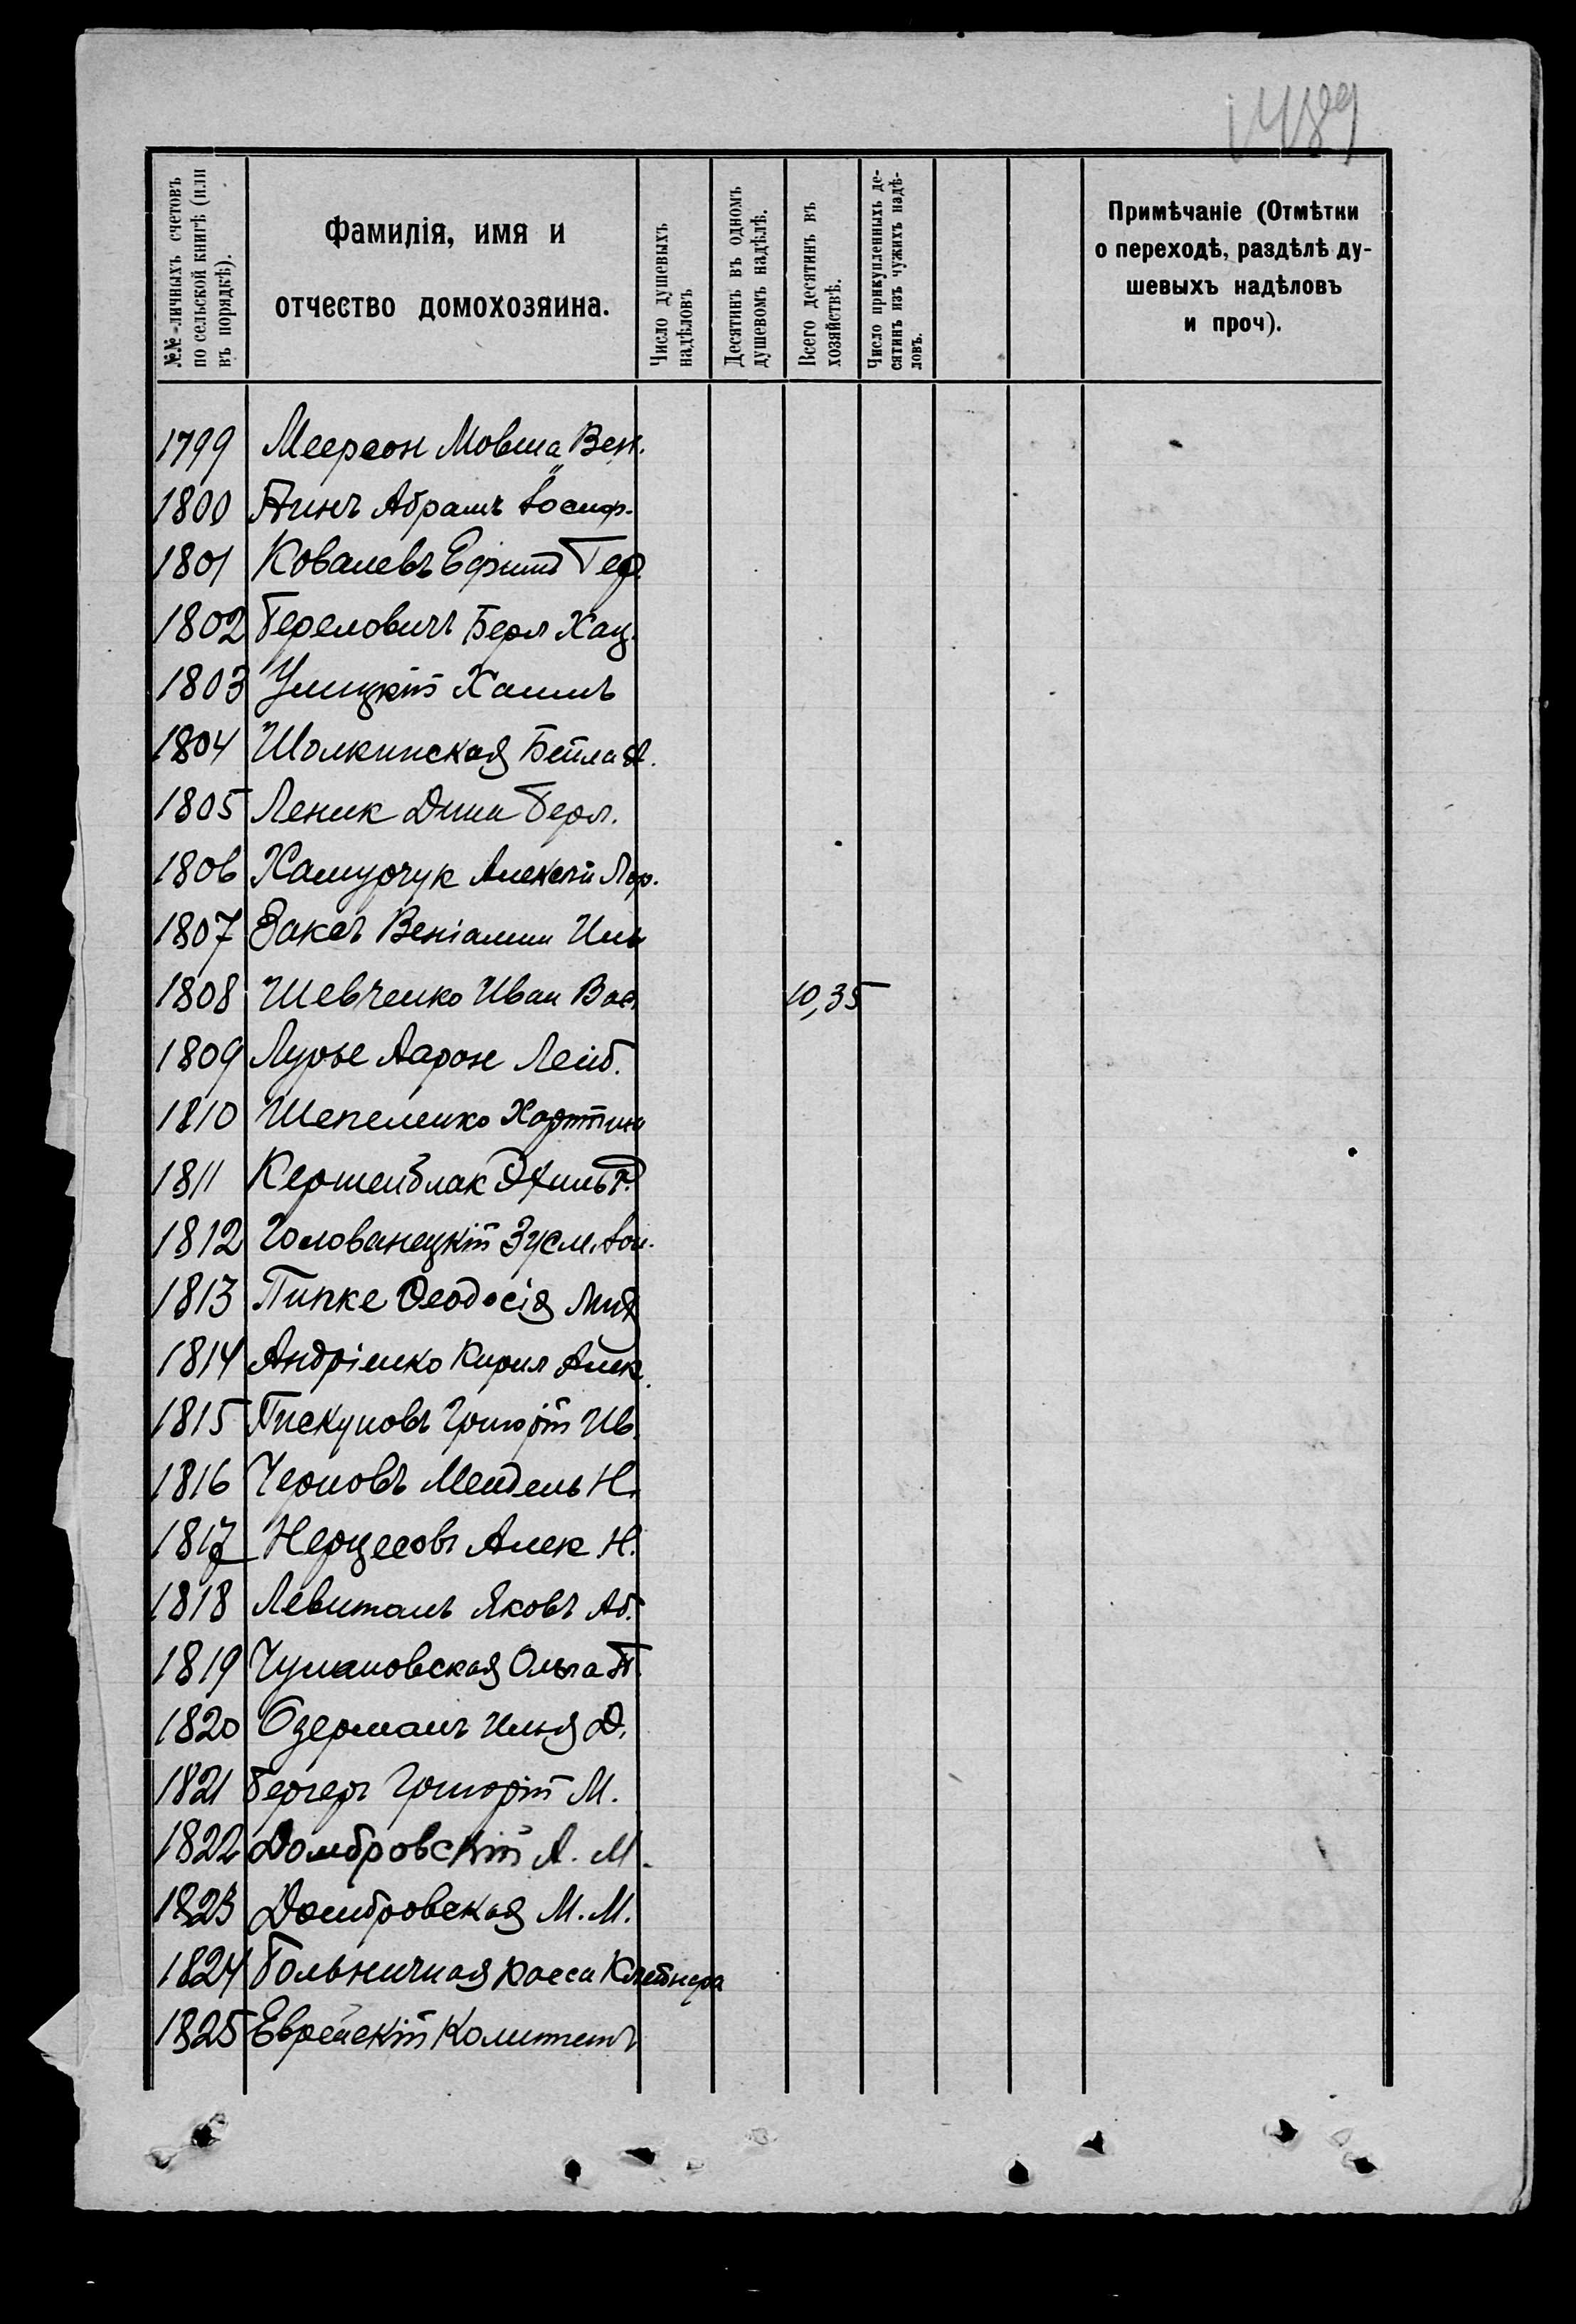 1489
№№ личныхъ счетовъ по сельской книгѣ (или въ порядкѣ).
Фамилія, имя и отчество домохозяина.
Число душевыхъ надѣловъ
Десятинъ въ одномъ душевомъ надѣлѣ.
Всего десятинъ въ хозяйствѣ.
Число прикупленныхъ десятинъ изъ чужихъ надѣловъ.
Примѣчаніе (Отмѣтки о переходѣ, раздѣлѣ душевыхъ надѣловъ и проч).
1799 Меерсон Мовша Вен.
1800 Пинъ Абрамъ Іосиф.
1801 Ковалевъ Ефимъ Геф
1802 Береловичъ Берл Хац.
1803 Улицкій Хаимъ
1804 Шолкинская Бейла А.
1805 Леник Дина Берл.
1806 Хамурчук Алексѣй
1807 Заксъ Веніамин Иль
1808 Шевченко Иван Вас. 10,35
1809 Лурье Аарон Лейб.
1810 Шепеленко Харитин
1811 Кершенблак
1812 Голованецкій Зусм.
1813 Пипке Феодосія
1814 Андріенко Кирил Алек.
1815 Пискуновъ Григорій Ив.
1816 Черновъ Мендель Н.
1817 Нерцесовъ Алек Н.
1818 Левитанъ Яковъ Аб.
1819 Чумановская Ольга П.
1820 Озерманъ Илья Д.
1821 Бергеръ Григорій М.
1822 Домбровскій А. М.
1823 Домбровская М. М.
1824 Больничная касса Клейнера
1825 Еврейскій Комитетъ